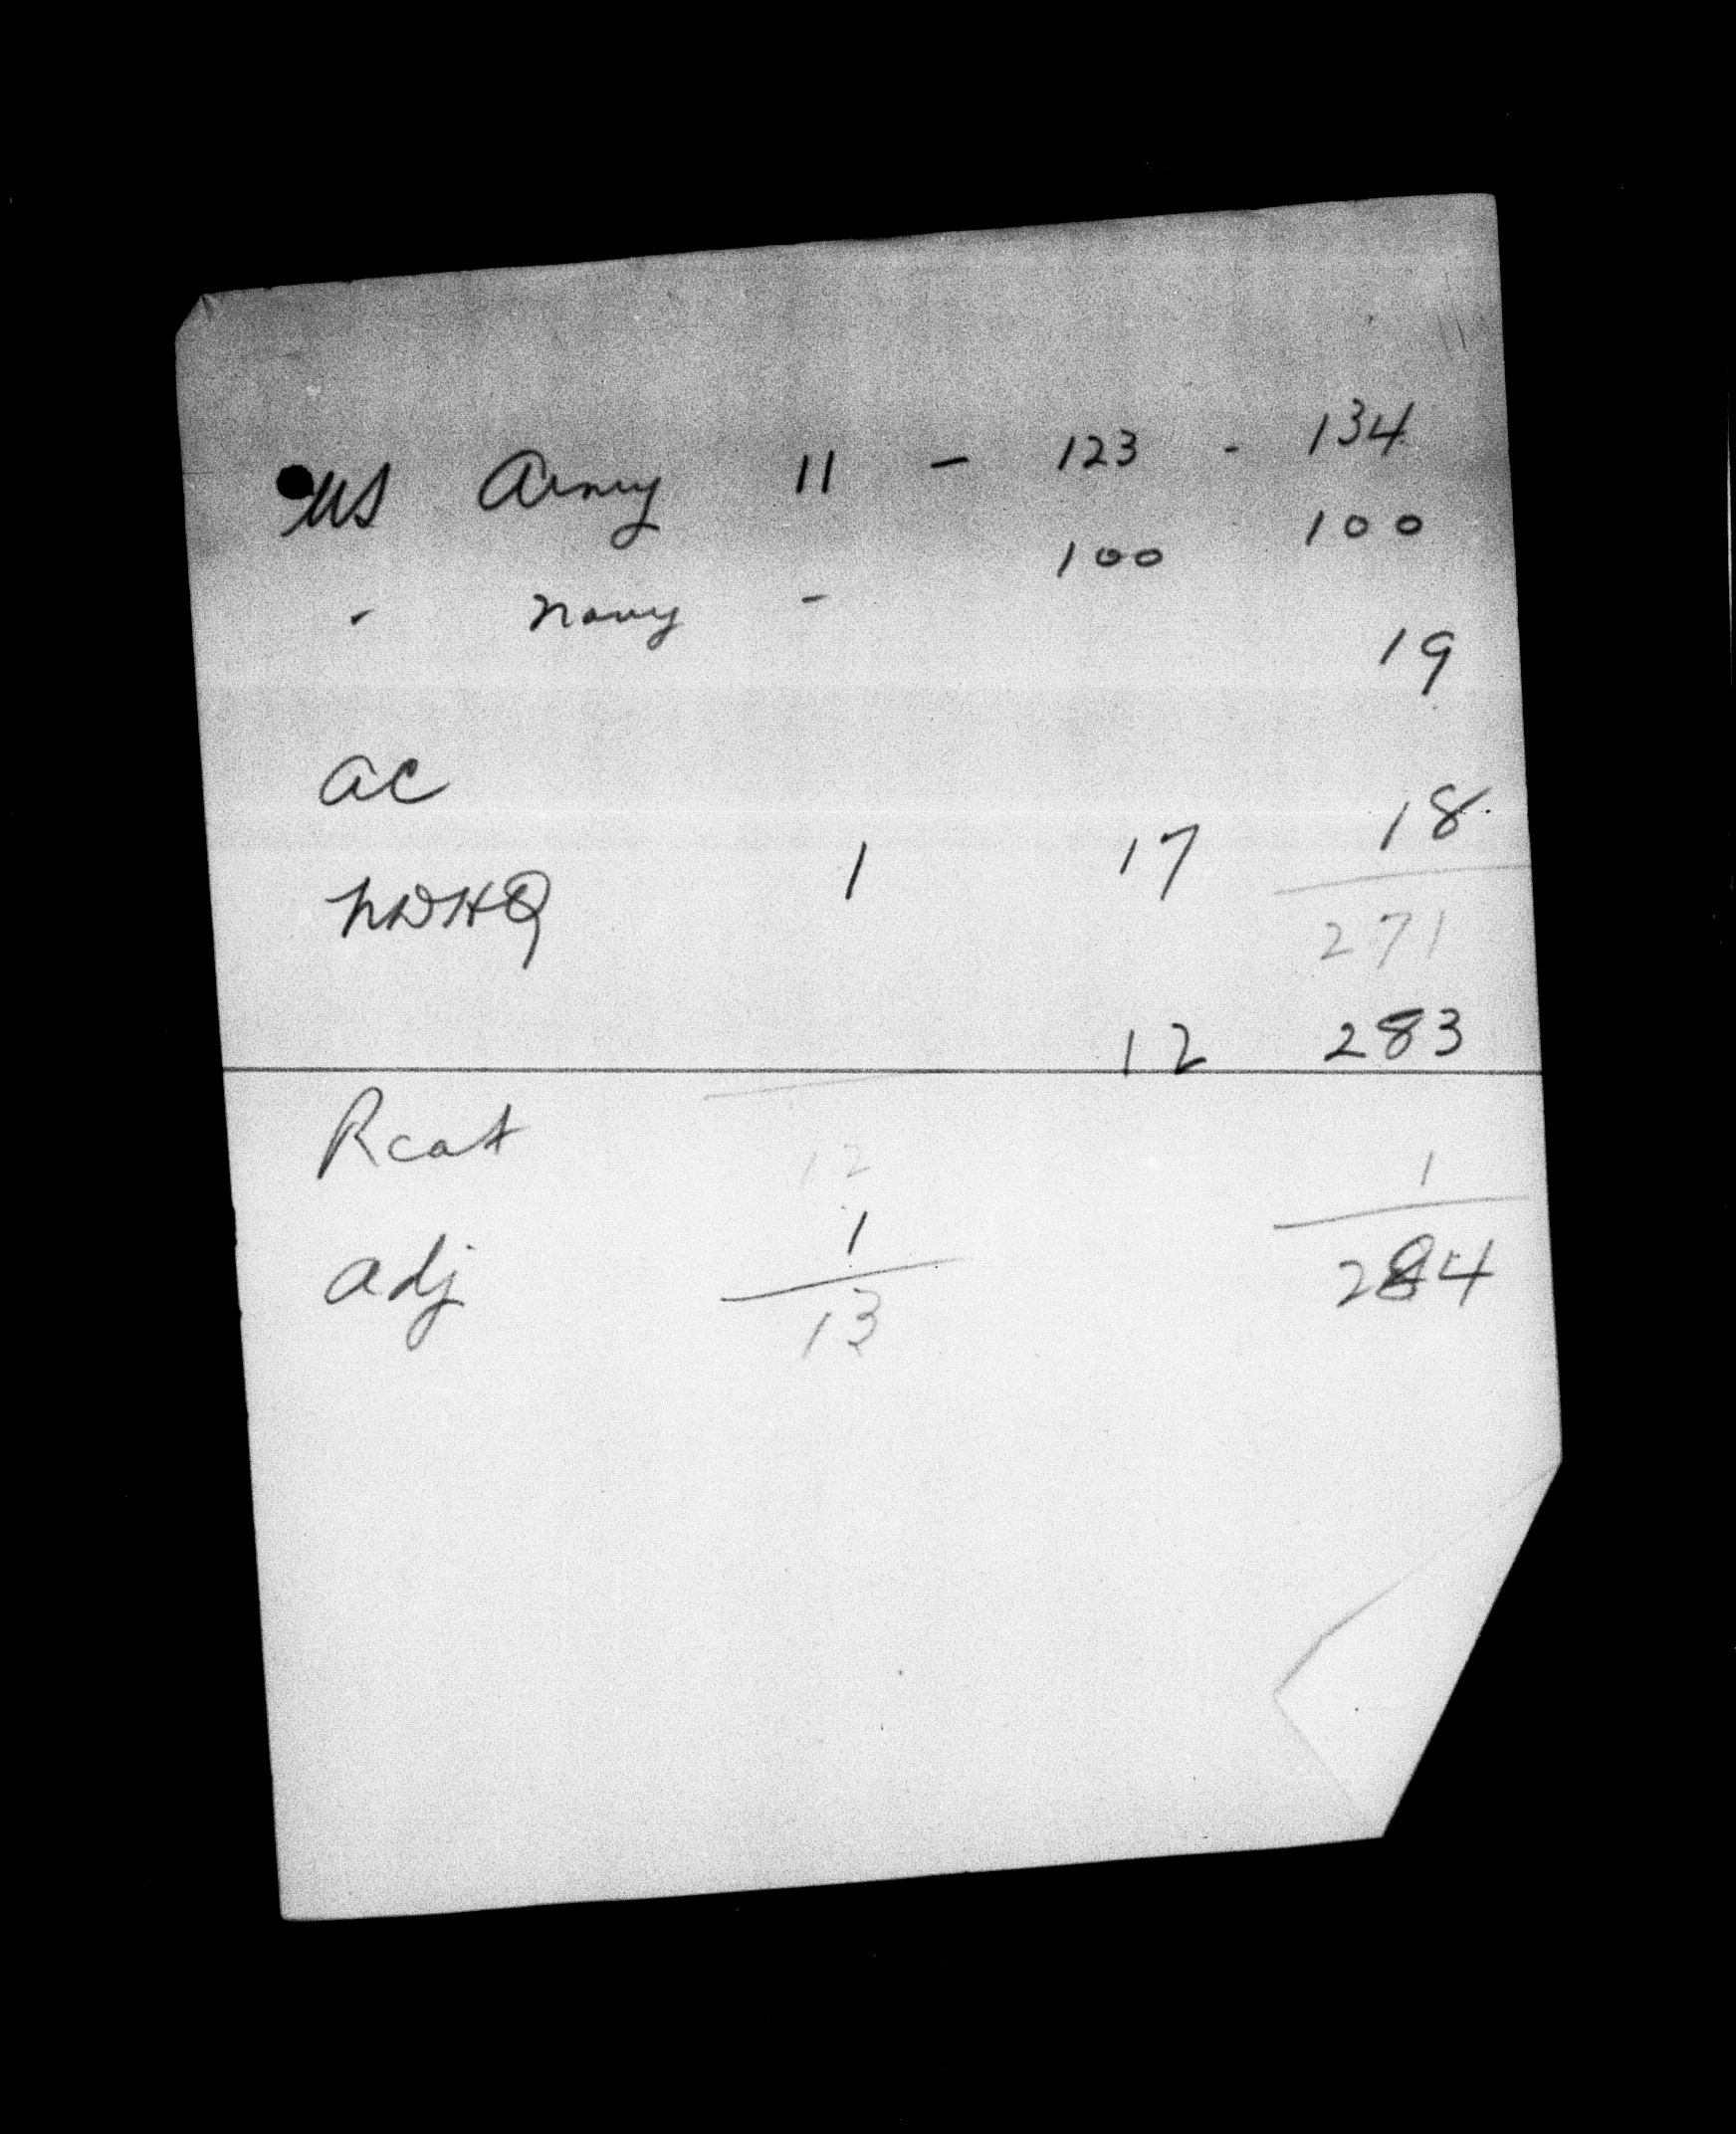 US Army 11 - 123 - 134
- Navy - 100 100
19
AC
NDHQ 1 17 18
271
12 283
Rcat
12
adj 1 1
13 284